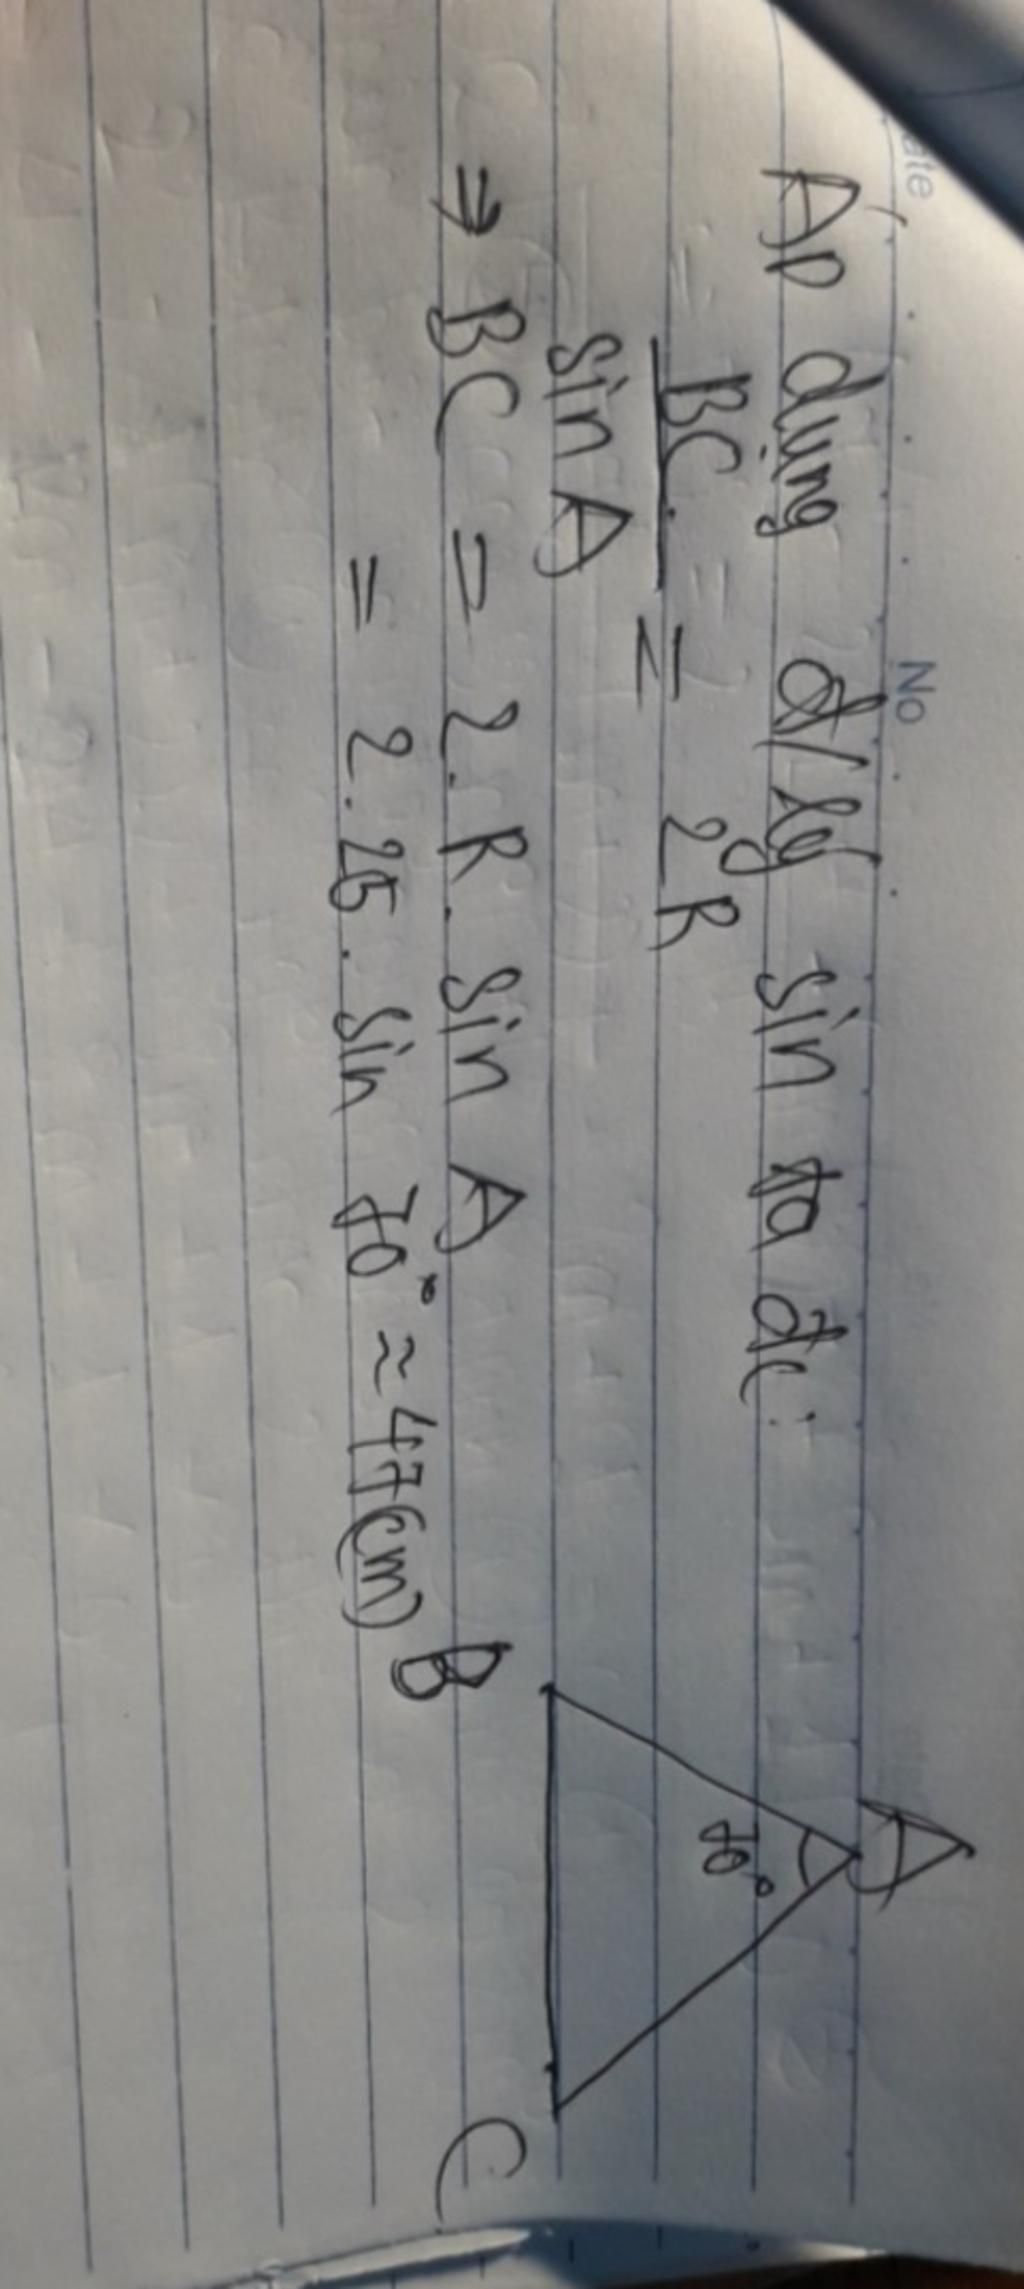 Date No
Áp dụng đ/lý sin ta đc:
BC = 2R
sin A
⇒ BC = 2.R.sin A
= 2.25.sin 70° ≈ 47(cm)
A
70°
B
C